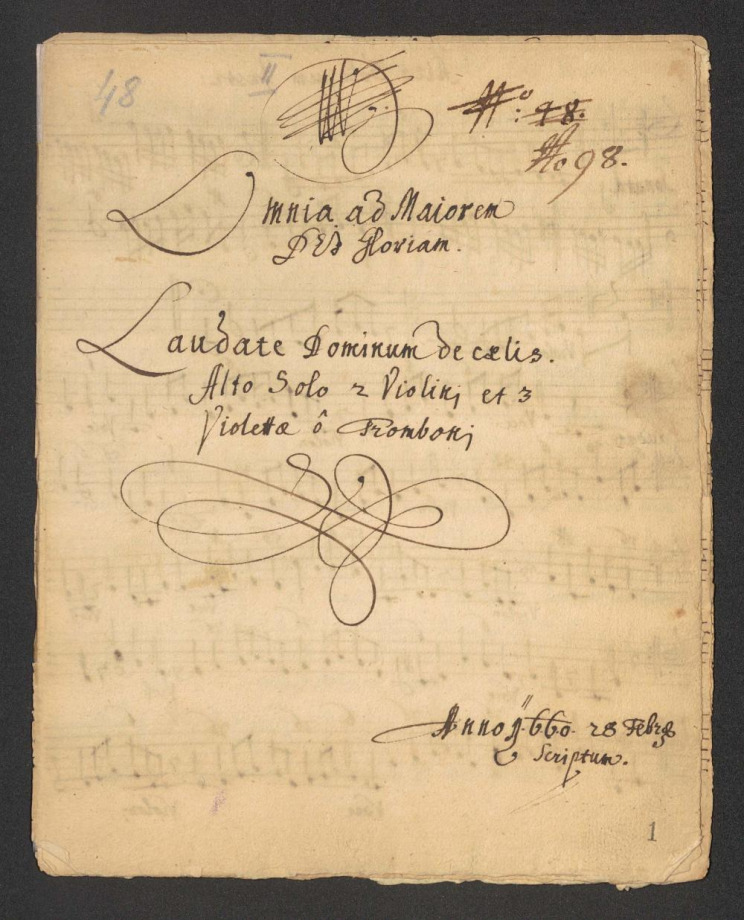 48
II
N⁰: 48.
No 98.
Omnia ad Maiorem
DEI gloriam.
Laudate Dominum de cælis.
Alto Solo 2 Violinj et 3
Violettæ ô Trombonj
Anno 1660. 28 Febr
Scriptum.
1